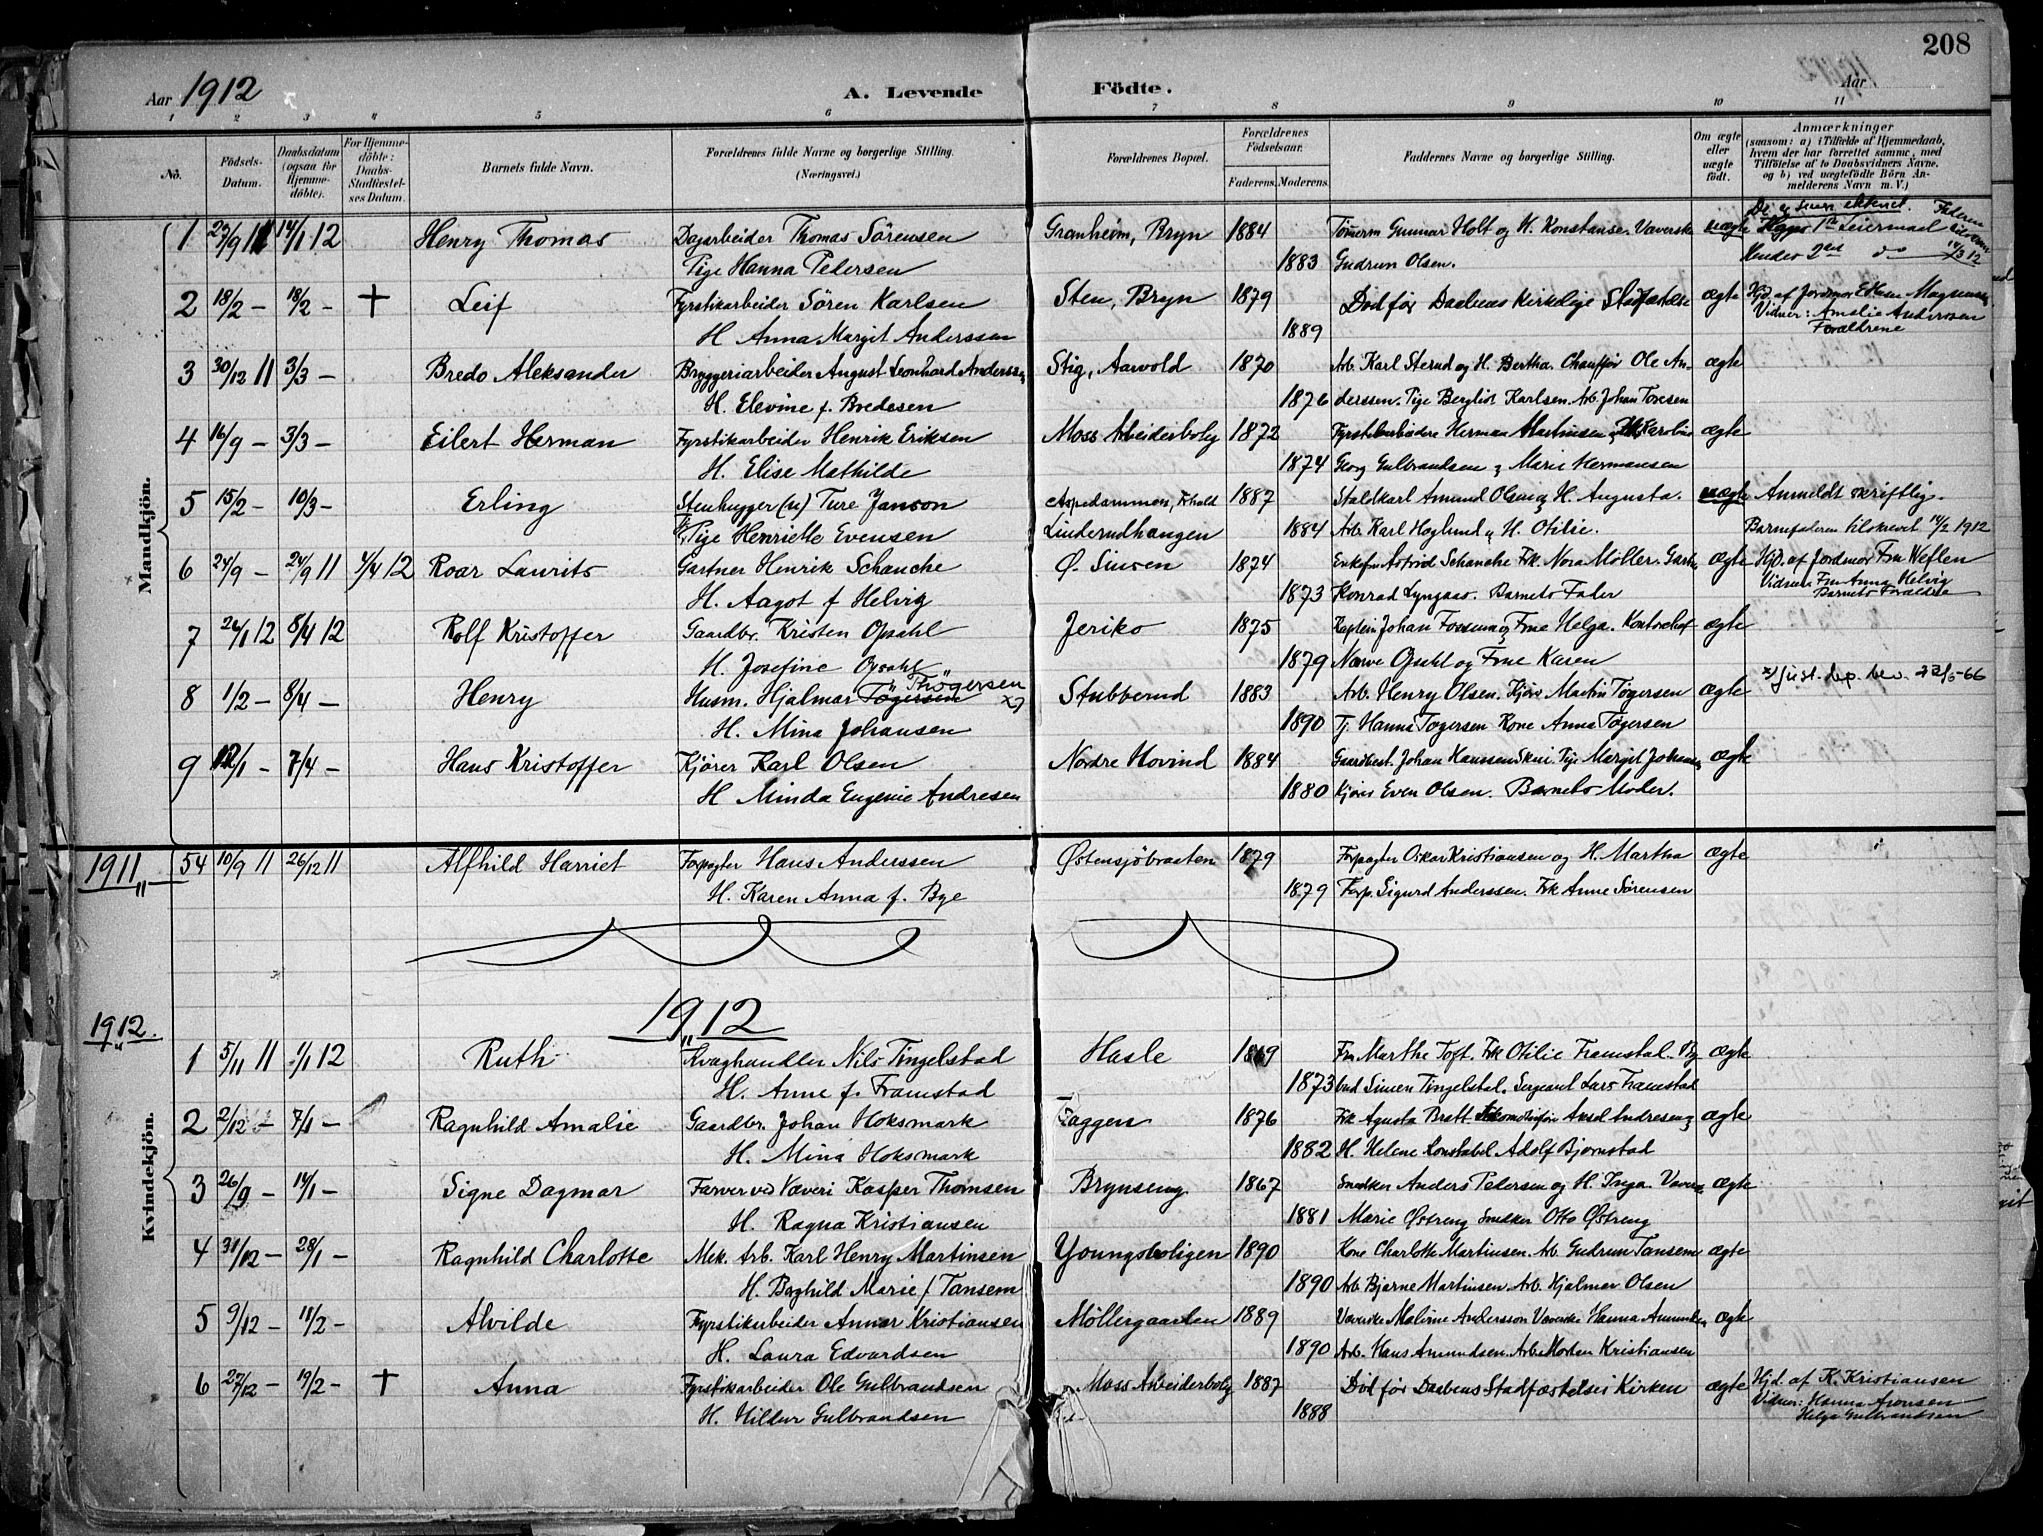 208
Aar 1912 A. Levende Fødte. Aar
1 2 3 4 5 6 7 8 9 10 11
No. Födsels-Datum. Daabsdatum (ogsaa for Hjemme-döbte). For Hjemme-döbte: Daabs-Stadfæstel-ses Datum. Barnets fulde Navn. Forældrenes fulde Navne og borgerlige Stilling. (Næringsvei.) Forældrenes Bopæl. Forældrenes Födselsaar. Faderens. Moderens. Faddernes Navne og borgerlige Stilling. Om ægte eller uægte födt. Anmærkninger (saasom: a) i Tilfælde af Hjemmedaab, hvem der har forrettet samme, med Tilföielse af to Daabsvidners Navne, og b) ved uægtefödte Börn An-melderens Navn m. V.)
Mandkjön.
1 27/9 11 14/1 12 Henry Thomas Dagarbeider Thomas Sörensen Granheim, Bryn 1884 Tömerm Gunnar Holt og H. Konstanse. Væverske uægte 1ste Leiermaal
Pige Hanna Pedersen 1883 Gudrun Olsen. Hendes 2det do 14/3 12
2 18/2 – 18/2 – + Leif Fyrstikarbeider Sören Karlsen Sten, Bryn 1879 Död för Daabens kirkelige Stadfæstelse ægte Hjd. af Jordmor
H. Anna Margit Anderssen 1889 Vidner: Amalie Anderssen
Forældrene
3 30/12 11 3/3 – Bredo Aleksander Bryggeriarbeider August Leonhard Anderssen Stig, Aarvold 1870 Arb. Karl Sterud og H. Bertha. Chaufför Ole An- ægte
H. Elevine f. Bredesen 1876 derssen. Pige Bergliot Karlsen. Arb. Johan Toresen
4 16/9 – 3/3 – Eilert Herman Fyrstikarbeider Henrik Eriksen Moss Arbeiderbolig 1872 Fyrstikarbeidere Herman Martinsen Karoline ægte
H. Elise Mathilde 1874 Georg Gulbrandsen og Marie Hermansen
5 15/2 – 10/3 – Erling Stenhugger (u) Ture Janson Aspedammen, Fr.hald 1887 Staldkarl Amund Olsen og H. Augusta. uægte Anmeldt skriftlig.
Pige Henriette Evensen Linderudhangen 1884 Arb. Karl Hoglund og H. Otilie. Barnefaderen tilskrevet 14/2 1912
6 24/9 – 24/9 11 4/4 12 Roar Laurits Gartner Henrik Schanche Ø. Sinsen 1874 Enkefru Astrid Schanche Frk. Nora Möller. Gartn. ægte Hjd. af Jordmor Fru Weflen
H. Aagot f. Helvig 1873 Konrad Lyngaas. Barnets Fader Vidner: Fru Anna Helvig
Barnets Forældre
7 24/1 12 8/4 12 Rolf Kristoffer Gaardbr. Kristen Opsahl Jeriko 1875 Kaptein Johan Fossum og Frue Helga. Kontorchef ægte
H. Josefine Opsahl 1879 Narve Opsahl og Frue Karen
8 1/2 – 8/4 – Henry Husm. Hjalmar Tøgersen "Thøgersen" x) Stubberud 1883 Arb. Henry Olsen. Kjörer Martin Tögersen ægte x) Just. dep. bev. 23/5-66
H. Mina Johansen 1890 Tj. Hanna Tögersen Kone Anna Tögersen
9 12/1 – 7/4 – Hans Kristoffer Kjörer Karl Olsen Nordre Hovind 1884 Gaardbest. Johan Hanssen Skui Pige Margit Johansen ægte
H Minda Eugenie Andresen 1880 Kjörer Even Olsen. Barnets Moder.
1911 54 10/9 11 26/12 11 Alfhild Harriet Forpagter Hans Anderssen Østensjöbraaten 1879 Forpagter Oskar Kristiansen og H. Martha ægte
H. Karen Anna f. Bye 1879 Forp. Sigurd Anderssen. Frk Anne Sörensen
1912
1912.
Kvindekjön.
1 5/11 11 1/1 12 Ruth Kvæghandler Nils Tingelstad Hasle 1869 Fru Marthe Toft. Frk Otilie Framstad. ægte
H. Anne f. Framstad 1873 bud Simen Tingelstad. Sergeant Lars Framstad
2 2/12 – 7/1 – Ragnhild Amalie Gaardbr. Johan Hoksmark Taggen 1876 Frk Agusta Bratt Aksel Andresen og ægte
H. Mina Hoksmark 1882 H. Helene Konstabel Adolf Bjørnstad
3 26/9 – 14/1 – Signe Dagmar Farver ved Væveri Kasper Thomsen Brynseng 1867 Snedker Anders Pedersen og H. Inga. Væver. ægte
H. Ragna Kristiansen 1881 Marie Østreng Snedker Otto Østreng
4 31/12 – 28/1 – Ragnhild Charlotte Mek. Arb. Karl Henry Martinsen Youngsboligen 1890 Kone Charlotte Martinsen. Arb. Gudrun Tansem ægte
H. Baghild Marie f Tansem 1890 Arb. Bjarne Martinsen Arb. Hjalmar Olsen
5 9/12 – 11/2 – Alvilde Fyrstikarbeider Annar Kristiansen Möllergaarden 1889 Væverske Malvine Andersson Væverske Hanna Amundsen ægte
H. Laura Edvardsen 1890 Arb. Hans Amundsen. Arb. Morten Kristiansen
6 27/12 – 19/2 – + Anna Fyrstikarbeider Ole Gulbrandsen Moss Arbeiderbolig 1887 Död för Daabens Stadfæstelse i Kirken ægte Hjd. af K. Kristiansen
H. Hildur Gulbrandsen 1888 Vidner: Hanna Aronsen
Helga Gulbrandsen